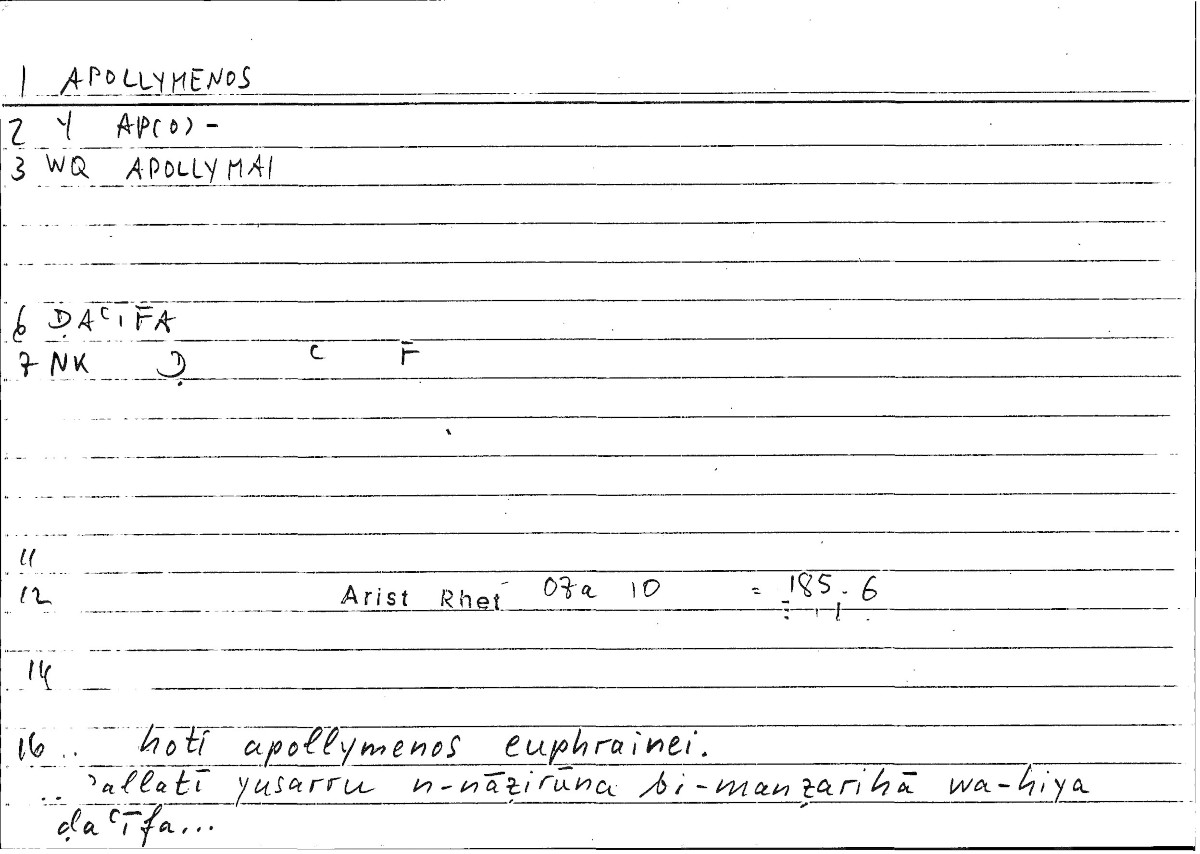 1 APOLLYMENOS
2 Y AP(O) -
3 WQ APOLLYMAI
6 ḌAʿĪFA
7 NK Ḍ ʿ F
11
12 Arist Rhet 07a 10 = 185.6
14
16 .. hoti apollymenos euphrainei.
.. ʾallatī yusarru n-nāẓirūna bi-manẓarihā wa-hiya
ḍaʿīfa...